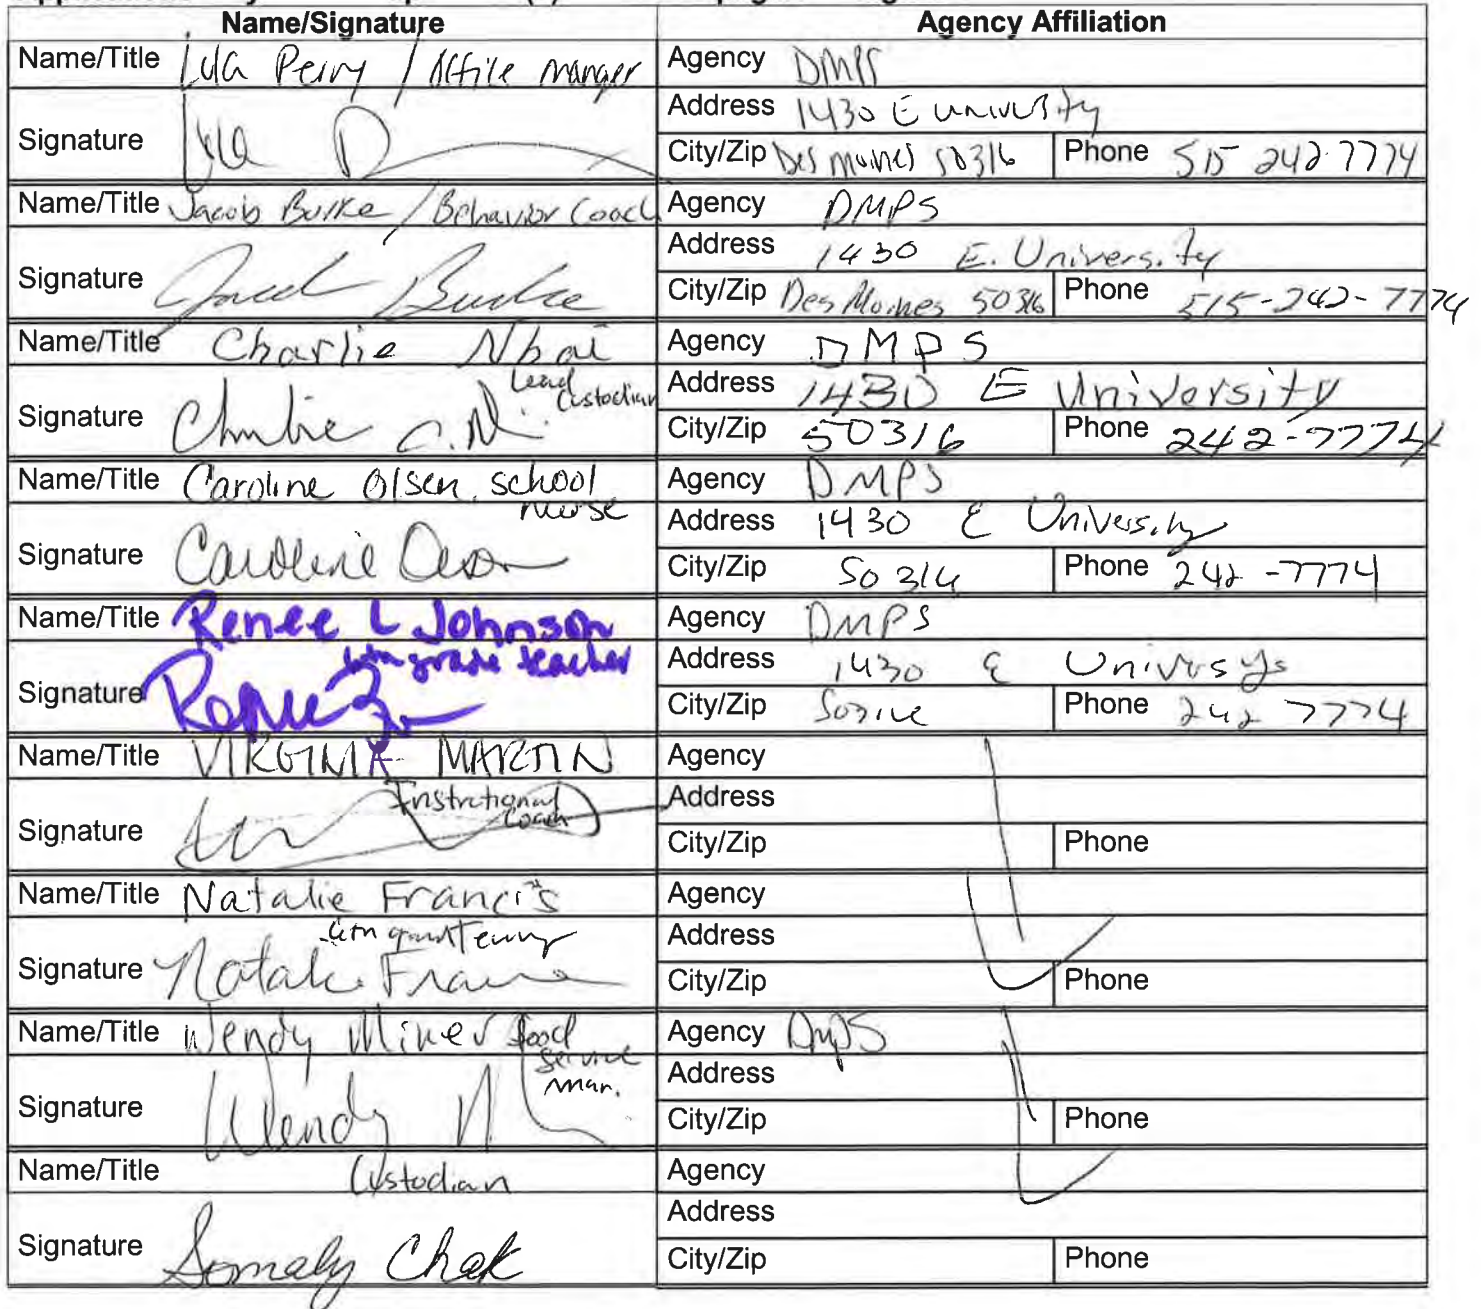 Name/Signature Agency Affiliation
Name/Title Lyla Perry / Office manager Agency DMPS
Signature Address 1430 E University
City/Zip Des Moines 50316 Phone 515 242-7774
Name/Title Jacob Burke / Behavior Coach Agency DMPS
Signature Jacob Burke Address 1430 E. University
City/Zip Des Moines 50316 Phone 515-242-7774
Name/Title Charlie Nhai Agency DMPS
Lead Custodian
Signature Charlie C. N. Address 1430 E University
City/Zip 50316 Phone 242-7774
Name/Title Caroline Olsen, school nurse Agency DMPS
Signature Caroline Olsen Address 1430 E University
City/Zip 50316 Phone 242-7774
Name/Title Renee L Johnson Agency DMPS
grade teacher
Signature Renee Address 1430 E
City/Zip Phone 242 7774
Name/Title VIRGINIA MARTIN Agency
Instructional Coach
Signature Address
City/Zip Phone
Name/Title Natalie Francis Agency
Signature Natalie Francis Address
City/Zip Phone
Name/Title Wendy Miner food service man. Agency DMPS
Signature Wendy M Address
City/Zip Phone
Name/Title Custodian Agency
Signature Somaly Chak Address
City/Zip Phone